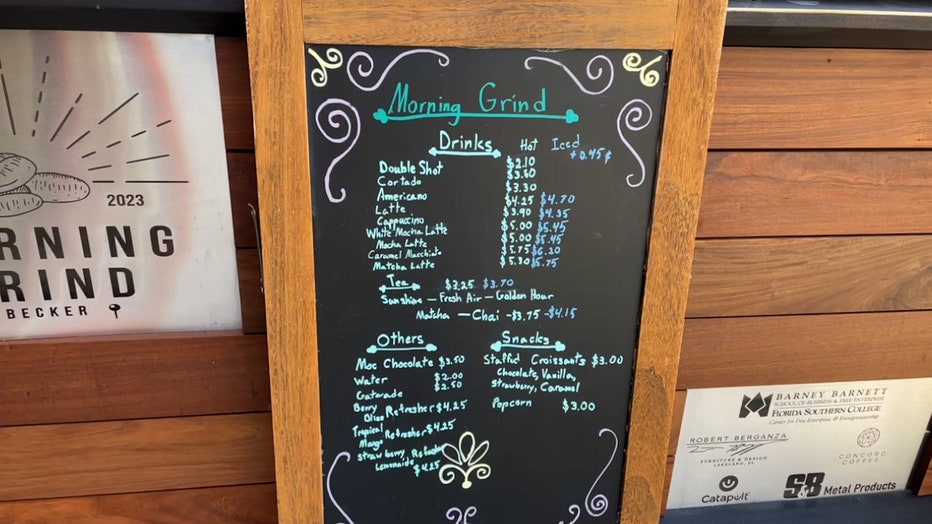 2023
RNING
RIND
BECKER
Morning Grind
Drinks Hot Iced
+ 0.45¢
Double Shot $2.10
Cortado $3.60
Americano $3.30
Latte $4.25 $4.70
Cappuccino $3.90 $4.35
White Mocha Latte $5.00 $5.45
Mocha Latte $5.00 $5.45
Caramel Macchiato $5.75 $6.20
Matcha Latte $5.30 $5.75
Tea $3.25 - $3.70
Sunshine - Fresh Air - Golden Hour
Matcha - Chai - $3.75 - $4.15
Others
Moc Chocolate $3.50
Water $2.00
Gatorade $2.50
Berry
Bliss Refresher $4.25
Tropical
Mango Refresher $4.25
Strawberry Refresher
Lemonade $4.25
Snacks
Stuffed Croissants $3.00
Chocolate, Vanilla,
Strawberry, Caramel
Popcorn $3.00
BARNEY BARNETT
SCHOOL OF BUSINESS & FREE ENTERPRISE
FLORIDA SOUTHERN COLLEGE
Center for Free Enterprise & Entrepreneurship
ROBERT BERGANZA
FURNITURE & DESIGN
LAKELAND, FL
CONCORD
COFFEE
Catapult
S&B Metal Products